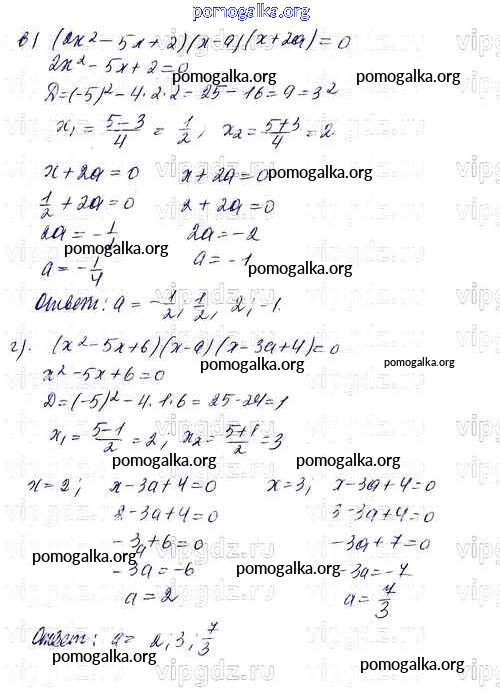 pomogalka.org
в) (2x² - 5x + 2)(x - a)(x + 2a) = 0
2x² - 5x + 2 = 0
pomogalka.org
D = (-5)² - 4·2·2 - 25 - 16 = 9 = 3²
x₁ = (5-3)/4 = 1/2, x₂ = (5+3)/4 = 2
x + 2a = 0 x + 2a = 0
pomogalka.org
1/2 + 2a = 0 2 + 2a = 0
2a = -1/ 2a = -2
pomogalka.org
a = -1/4 a = -1
pomogalka.org
Ответ: a = -1/2; 1/2, 2; -1.
г). (x² - 5x + 6)(x - a)(x - 3a + 4) = 0
pomogalka.org
x² - 5x + 6 = 0
D = (-5)² - 4·1·6 = 25 - 24 = 1
x₁ = (5-1)/2 = 2; x₂ = (5+1)/2 = 3
pomogalka.org pomogalka.org
x = 2; x - 3a + 4 = 0 x = 3; x - 3a + 4 = 0
2 - 3a + 4 = 0 3 - 3a + 4 = 0
-3a + 6 = 0 -3a + 7 = 0
pomogalka.org
-3a = -6 -3a = -7
pomogalka.org
a = 2 a = 7/3
Ответ: a = 2; 3; 7/3
pomogalka.org pomogalka.org
vipgdz.ru